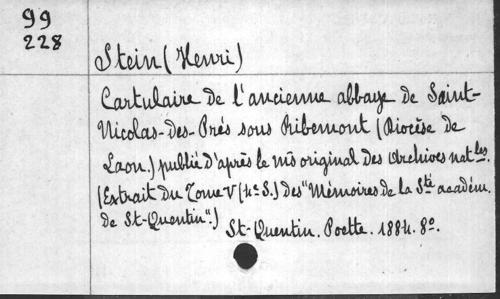 99
228
Stein (Henri)
Cartulaire de l'ancienne abbaye de Saint-
Nicolas-des-Prés sous Ribemont (Diocèse de
Laon.) publié d'après le ms original des Archives natles.
(Extrait du Tome V (4e S.) des "Mémoires de la Sté académ.
de St-Quentin".)
St-Quentin. Poette. 1884. 8o.